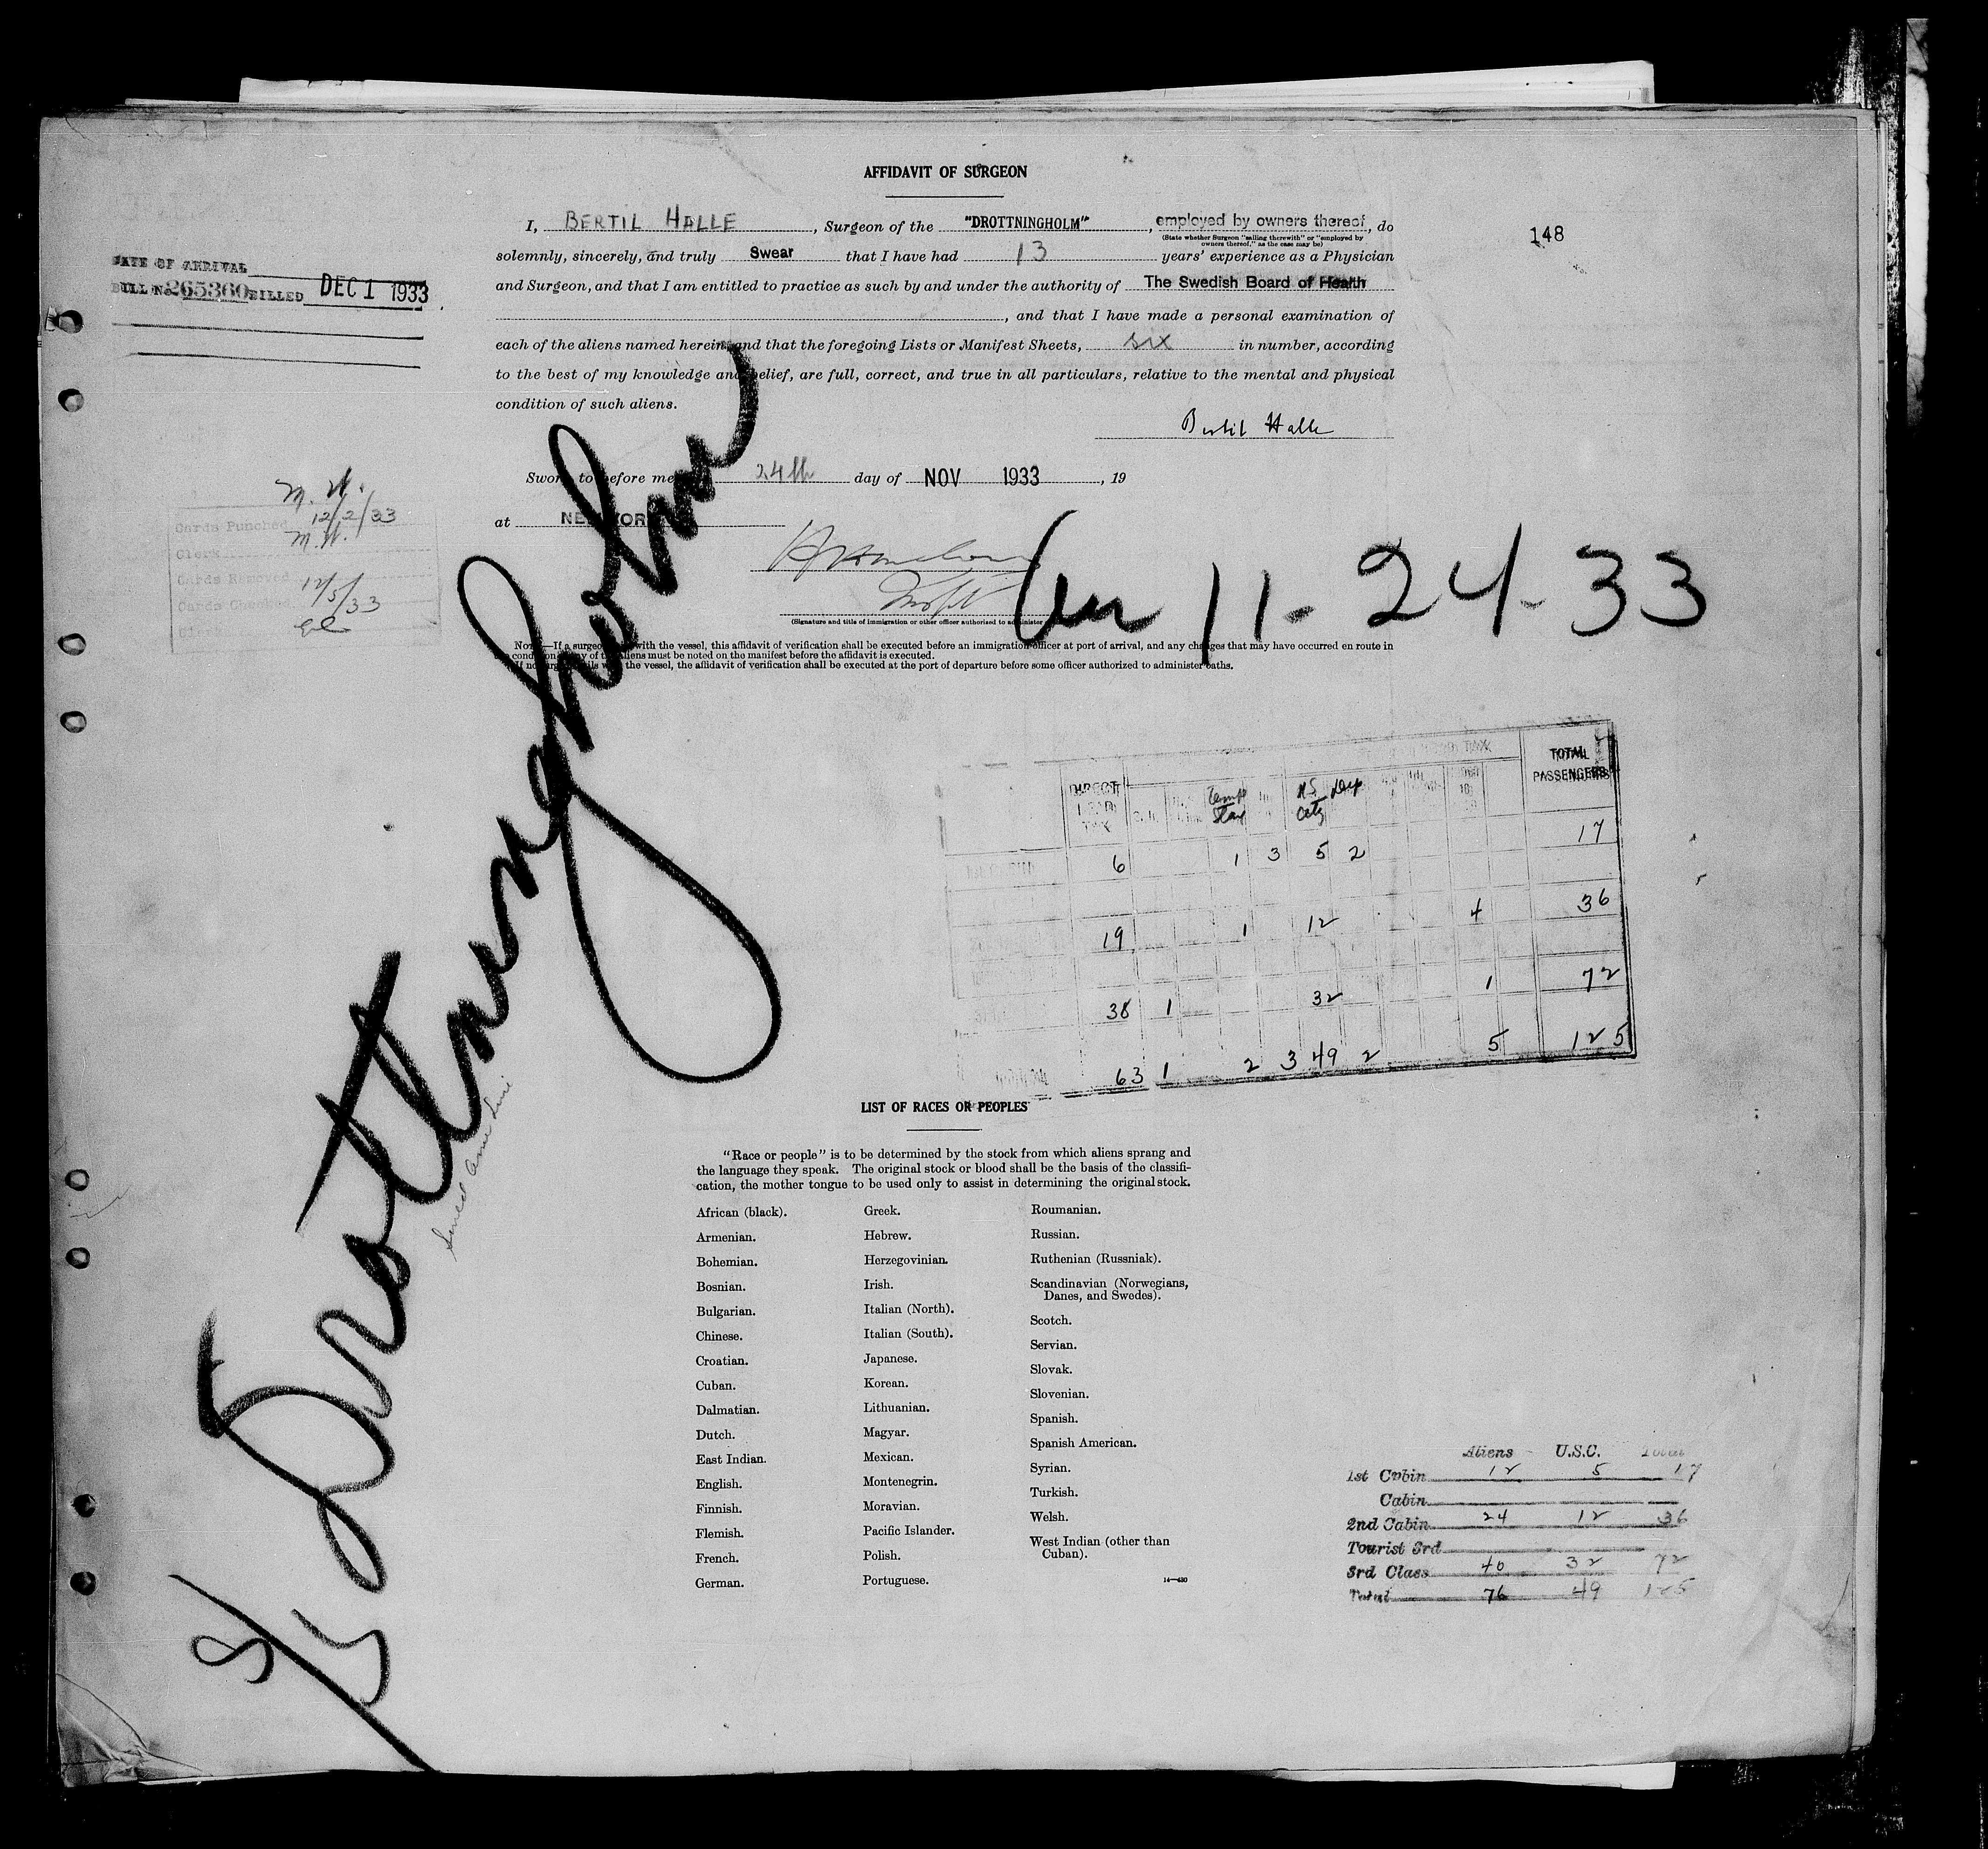 AFFIDAVIT OF SURGEON
I, BERTIL HALLE, Surgeon of the "DROTTNINGHOLM", employed by owners thereof, do
(State whether Surgeon "sailing therewith" or "employed by
owners thereof," as the case may be)
148
solemnly, sincerely, and truly Swear that I have had 13 years' experience as a Physician
and Surgeon, and that I am entitled to practice as such by and under the authority of The Swedish Board of Health
, and that I have made a personal examination of
each of the aliens named herein and that the foregoing Lists or Manifest Sheets, six in number, according
to the best of my knowledge and belief, are full, correct, and true in all particulars, relative to the mental and physical
condition of such aliens.
Bertil Halle
DATE OF ARRIVAL
BILL No. 265360 BILLED DEC 1 1933
Sworn to before me 24th day of NOV 1933, 19
at NEW YORK
M. W.
Cards Punched 12/2/33
Clerk M. W.
Cards Removed
Cards Checked 12/5/33
(Signature and title of immigration or other officer authorized to administer
11-24-33
NOTE.—If a surgeon with the vessel, this affidavit of verification shall be executed before an immigration officer at port of arrival, and any changes that may have occurred en route in
condition any of the aliens must be noted on the manifest before the affidavit is executed.
If no surgeon sails with the vessel, the affidavit of verification shall be executed at the port of departure before some officer authorized to administer oaths.
Drottningholm
8/15
DIRECT HEAD TAX TOTAL PASSENGERS
Temp Stay U.S. Cetz Dep
6 1 3 5 2 17
19 1 12 4 36
38 1 32 1 72
63 1 2 3 49 2 5 125
LIST OF RACES OR PEOPLES
"Race or people" is to be determined by the stock from which aliens sprang and
the language they speak. The original stock or blood shall be the basis of the classifi-
cation, the mother tongue to be used only to assist in determining the original stock.
African (black).
Armenian.
Bohemian.
Bosnian.
Bulgarian.
Chinese.
Croatian.
Cuban.
Dalmatian.
Dutch.
East Indian.
English.
Finnish.
Flemish.
French.
German.
Greek.
Hebrew.
Herzegovinian.
Irish.
Italian (North).
Italian (South).
Japanese.
Korean.
Lithuanian.
Magyar.
Mexican.
Montenegrin.
Moravian.
Pacific Islander.
Polish.
Portuguese.
Roumanian.
Russian.
Ruthenian (Russniak).
Scandinavian (Norwegians,
Danes, and Swedes).
Scotch.
Servian.
Slovak.
Slovenian.
Spanish.
Spanish American.
Syrian.
Turkish.
Welsh.
West Indian (other than
Cuban).
14—430
Aliens U.S.C. Total
1st Cabin 12 5 17
Cabin
2nd Cabin 24 12 36
Tourist 3rd
3rd Class 40 32 72
Total 76 49 125